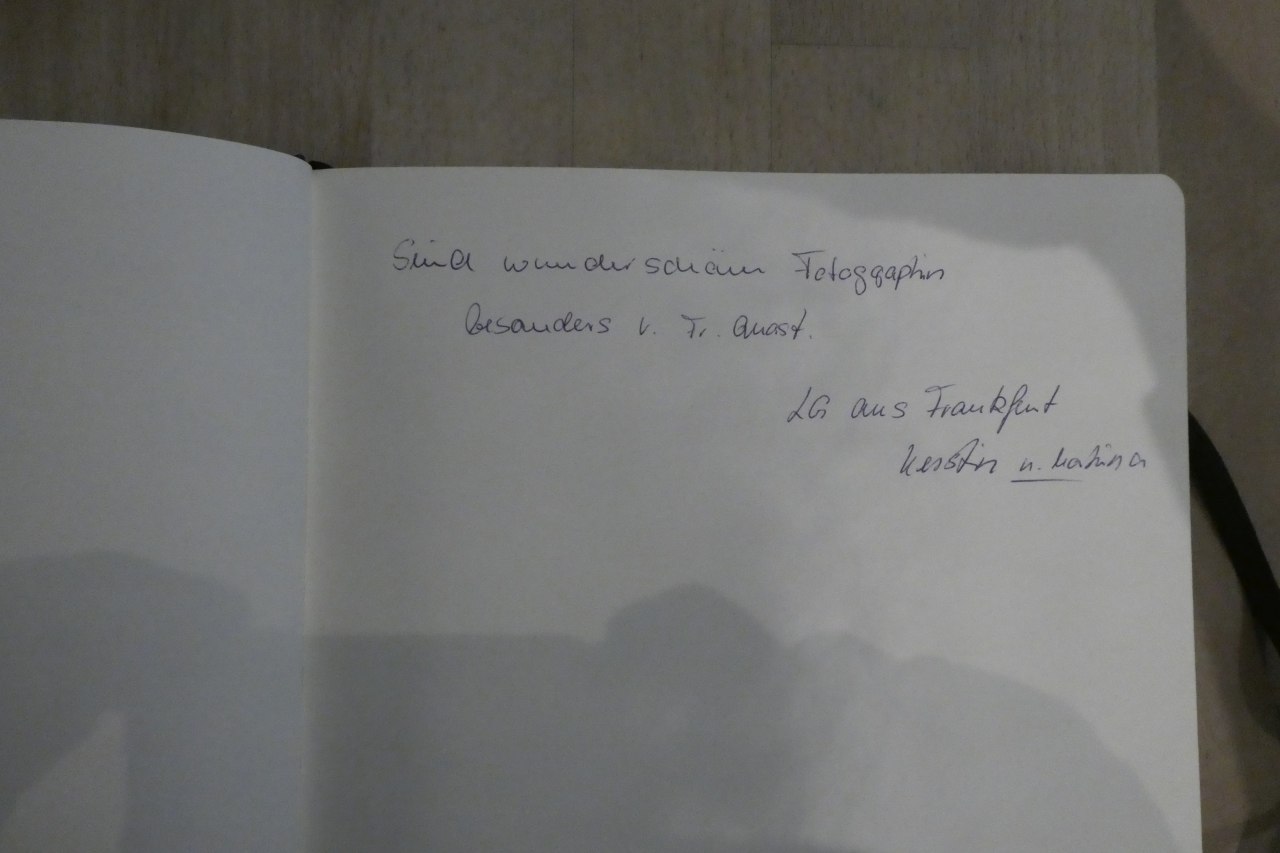 Sind wunderschöne Fotographien
besonders v. Fr. Quast.
LG aus Frankfurt
Kerstin u.